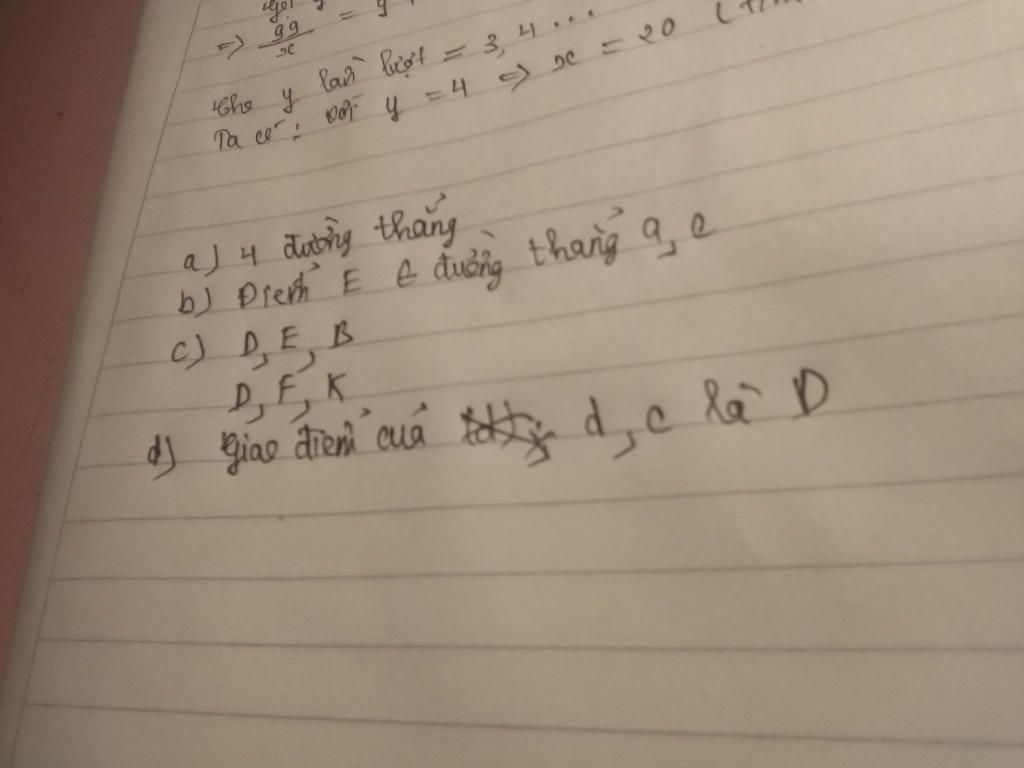 => 99/x = y
Cho y lần lượt = 3, 4 ...
Ta có: với y = 4 => x = 20
a) 4 đường thẳng
b) Điểm E ∈ đường thẳng a, c
c) D, E, B
D, F, K
d) giao điểm của d, c là D